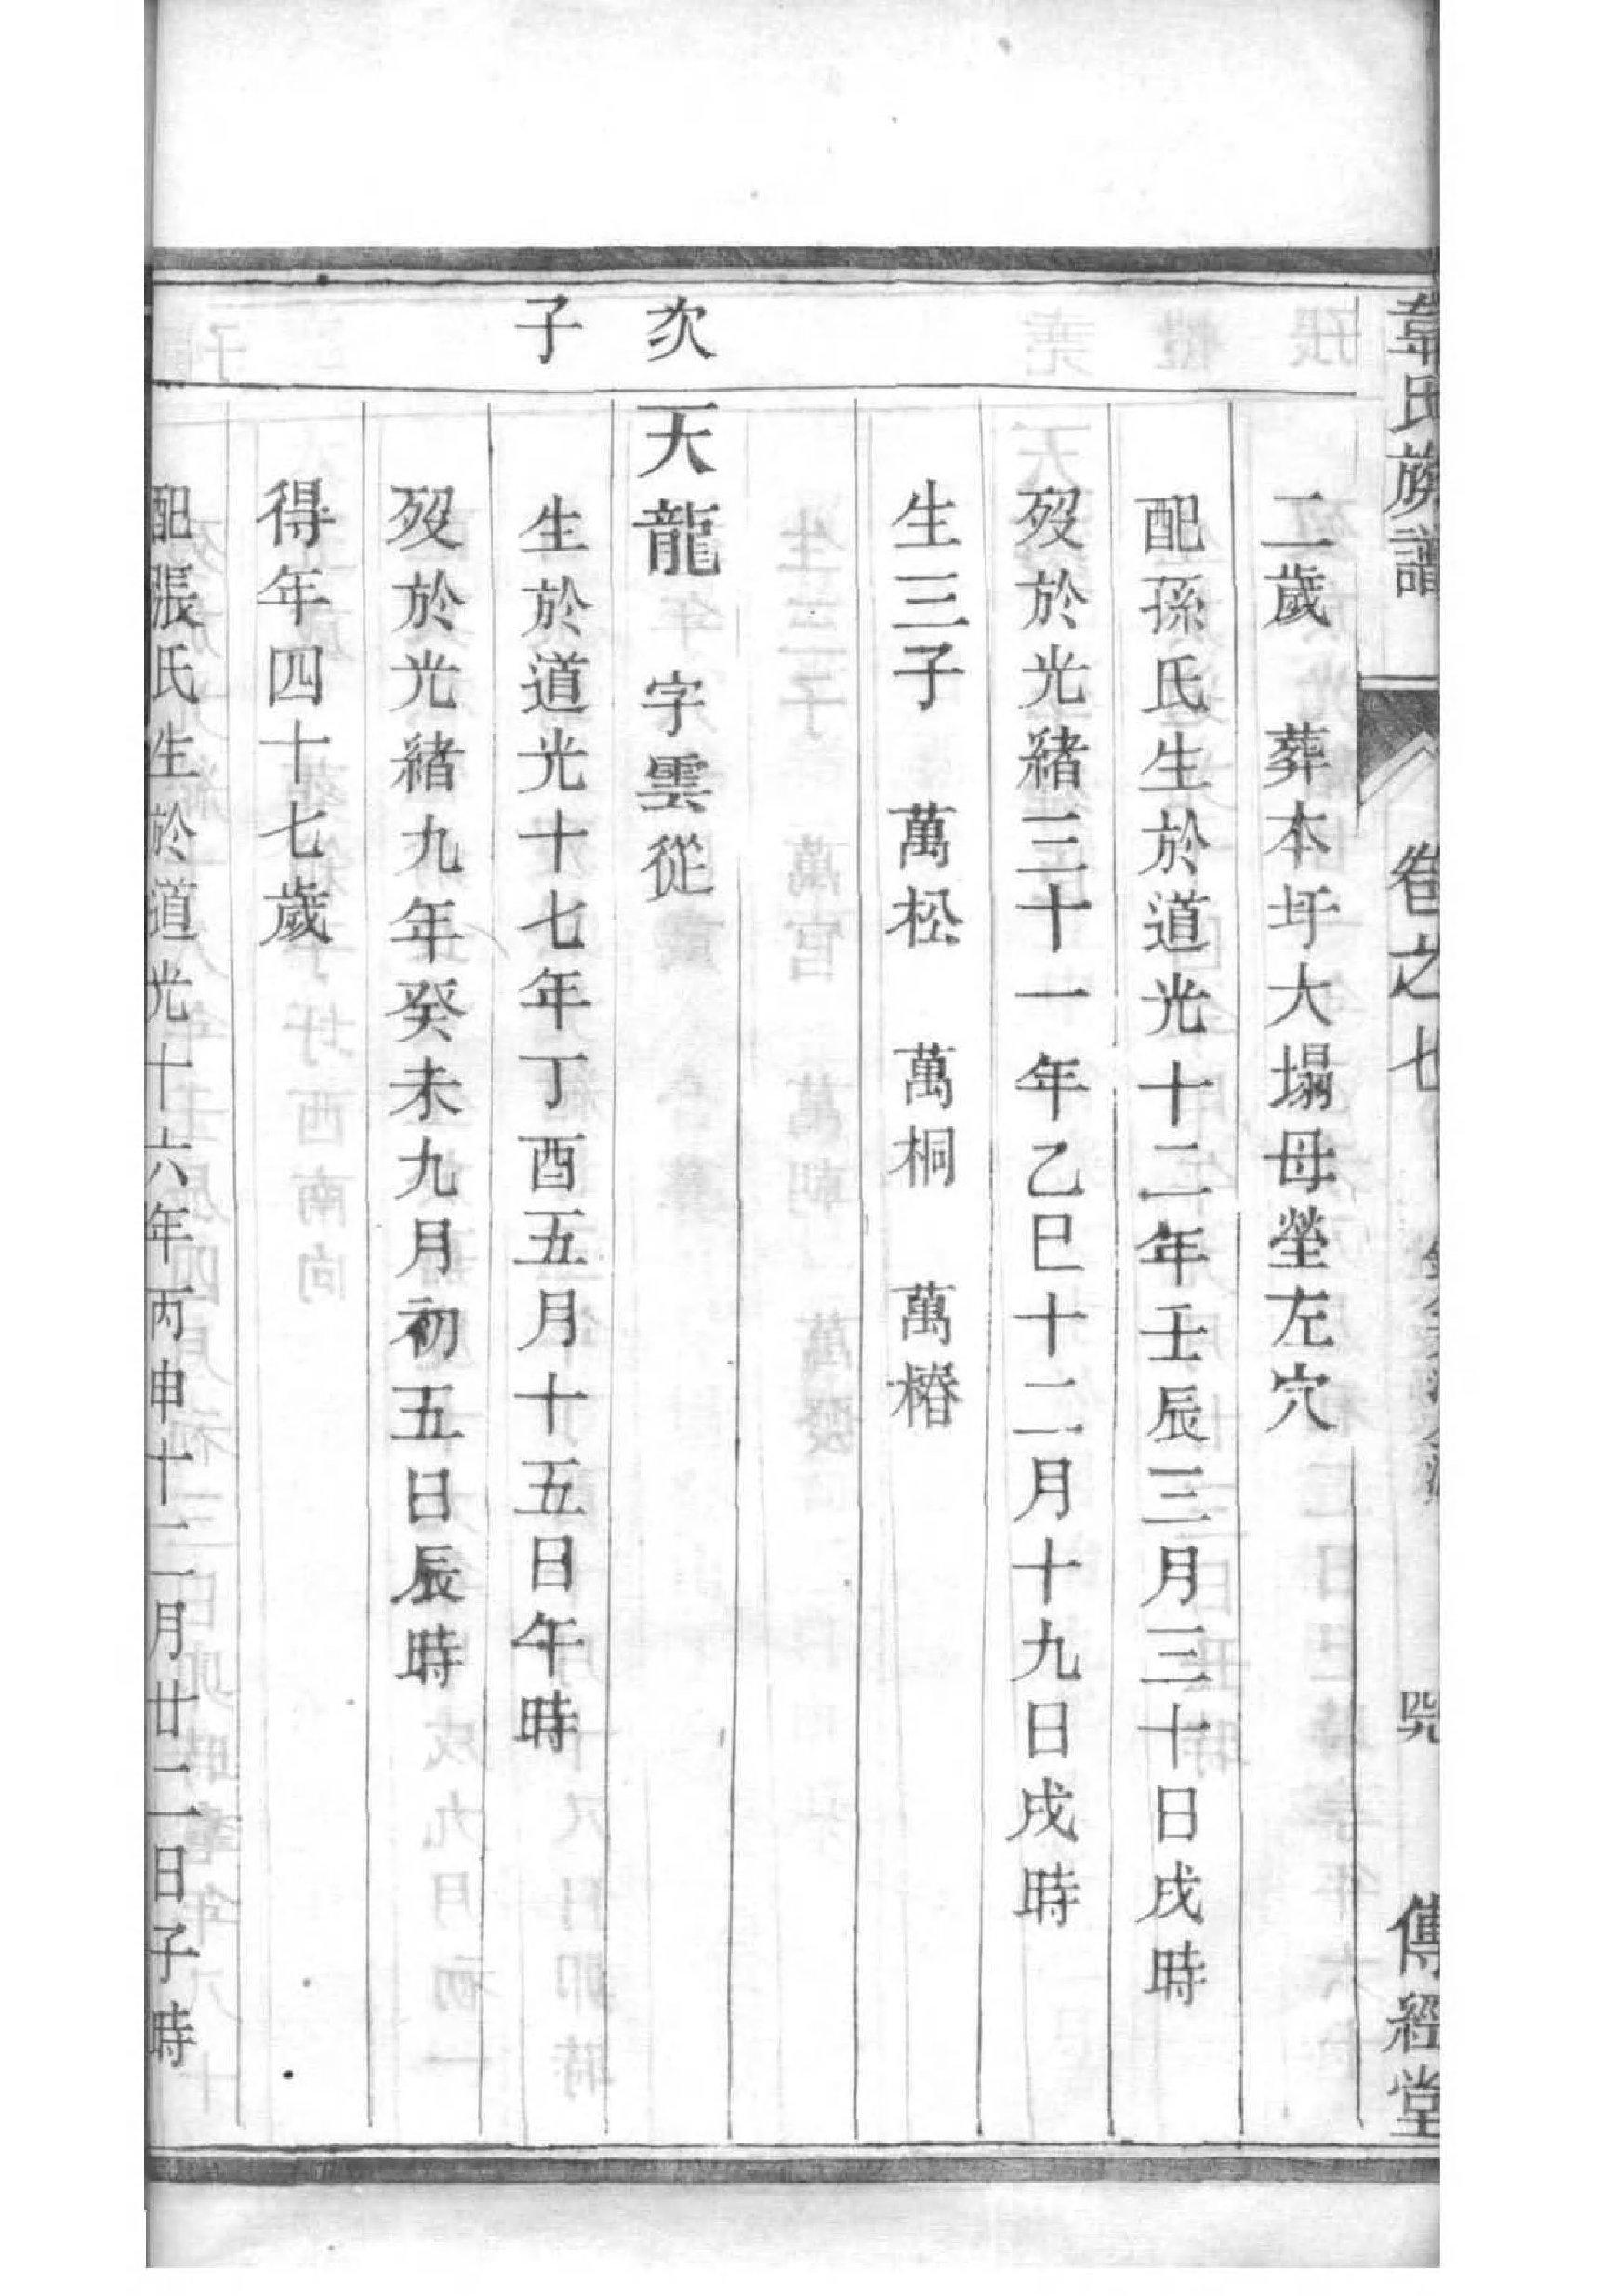 韋氏族譜 卷之七 傳經堂
二歲 葬本圩大塌母塋左穴
配孫氏生於道光十二年壬辰三月三十日戌時
歿於光緒三十一年乙巳十二月十九日戌時
生三子 萬松 萬桐 萬椿
次子
天龍 字雲從
生於道光十七年丁酉五月十五日午時
歿於光緒九年癸未九月初五日辰時
得年四十七歲
配張氏生於道光十六年丙申十二月廿二日子時